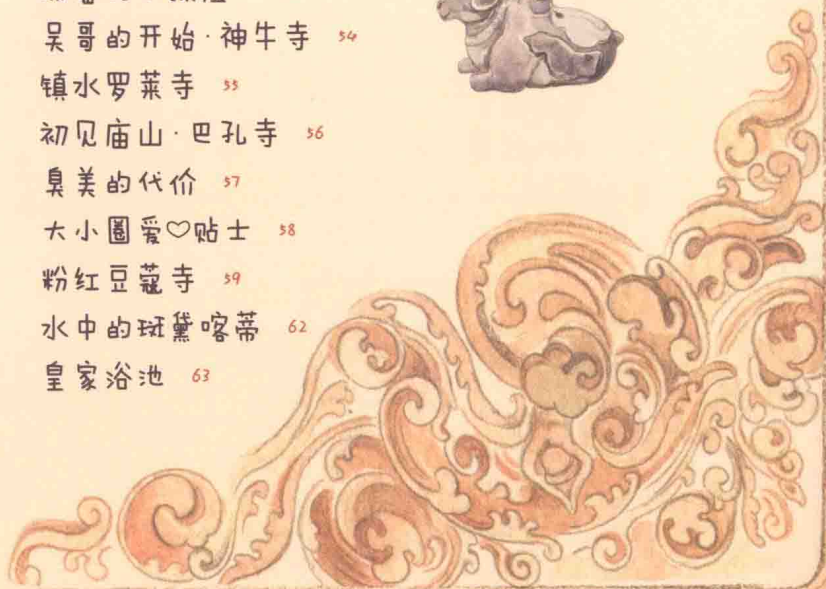 吴哥的开始·神牛寺 54
镇水罗莱寺 55
初见庙山·巴孔寺 56
臭美的代价 57
大小圈爱♡贴士 58
粉红豆蔻寺 59
水中的斑黛喀蒂 62
皇家浴池 63